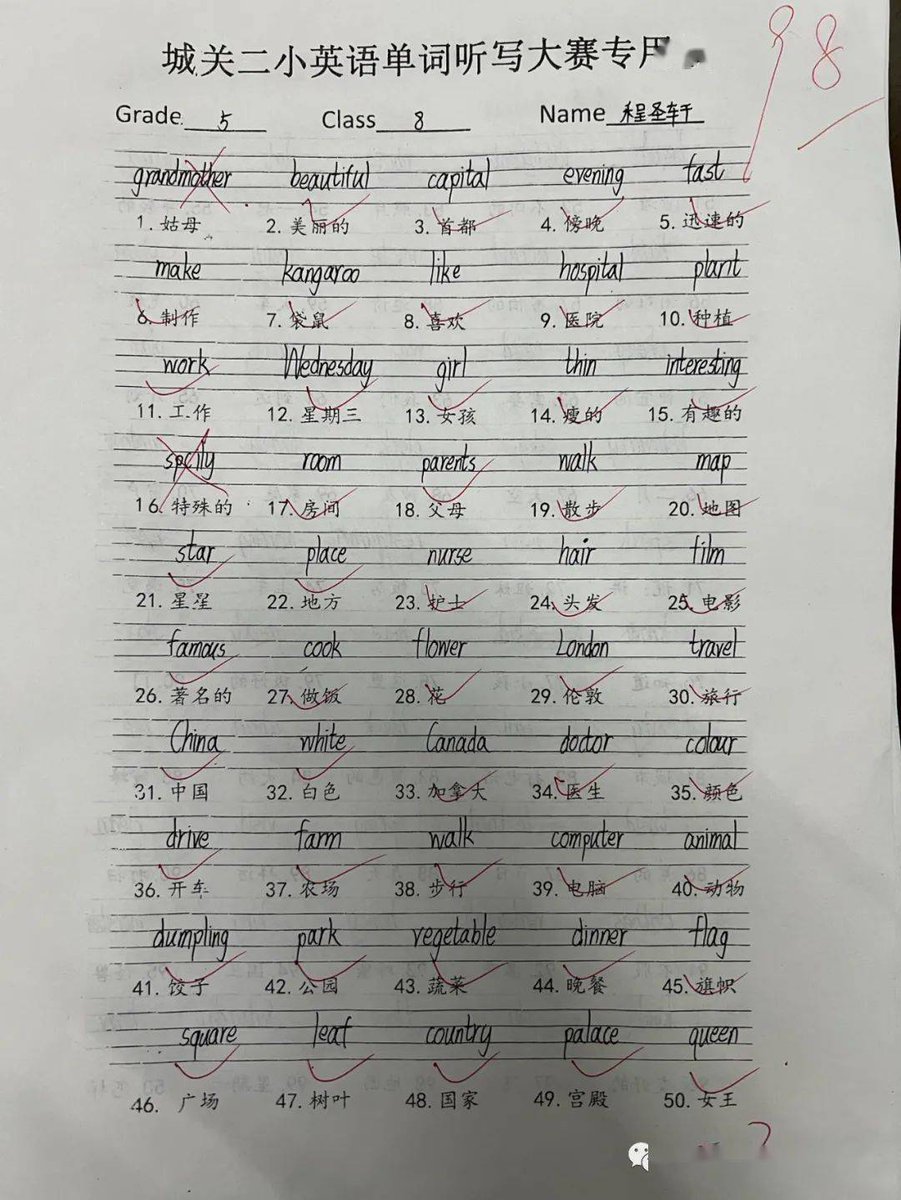 城关二小英语单词听写大赛专用
98
Grade 5 Class 8 Name 程圣轩
grandmother beautiful capital evening fast
1. 姑母 2. 美丽的 3. 首都 4. 傍晚 5. 迅速的
make kangaroo like hospital plant
6. 制作 7. 袋鼠 8. 喜欢 9. 医院 10. 种植
work Wednesday girl thin interesting
11. 工作 12. 星期三 13. 女孩 14. 瘦的 15. 有趣的
room parents walk map
16. 特殊的 17. 房间 18. 父母 19. 散步 20. 地图
star place nurse hair film
21. 星星 22. 地方 23. 护士 24. 头发 25. 电影
famous cook flower London travel
26. 著名的 27. 做饭 28. 花 29. 伦敦 30. 旅行
China white Canada doctor colour
31. 中国 32. 白色 33. 加拿大 34. 医生 35. 颜色
drive farm walk computer animal
36. 开车 37. 农场 38. 步行 39. 电脑 40. 动物
dumpling park vegetable dinner flag
41. 饺子 42. 公园 43. 蔬菜 44. 晚餐 45. 旗帜
square leaf country palace queen
46. 广场 47. 树叶 48. 国家 49. 宫殿 50. 女王